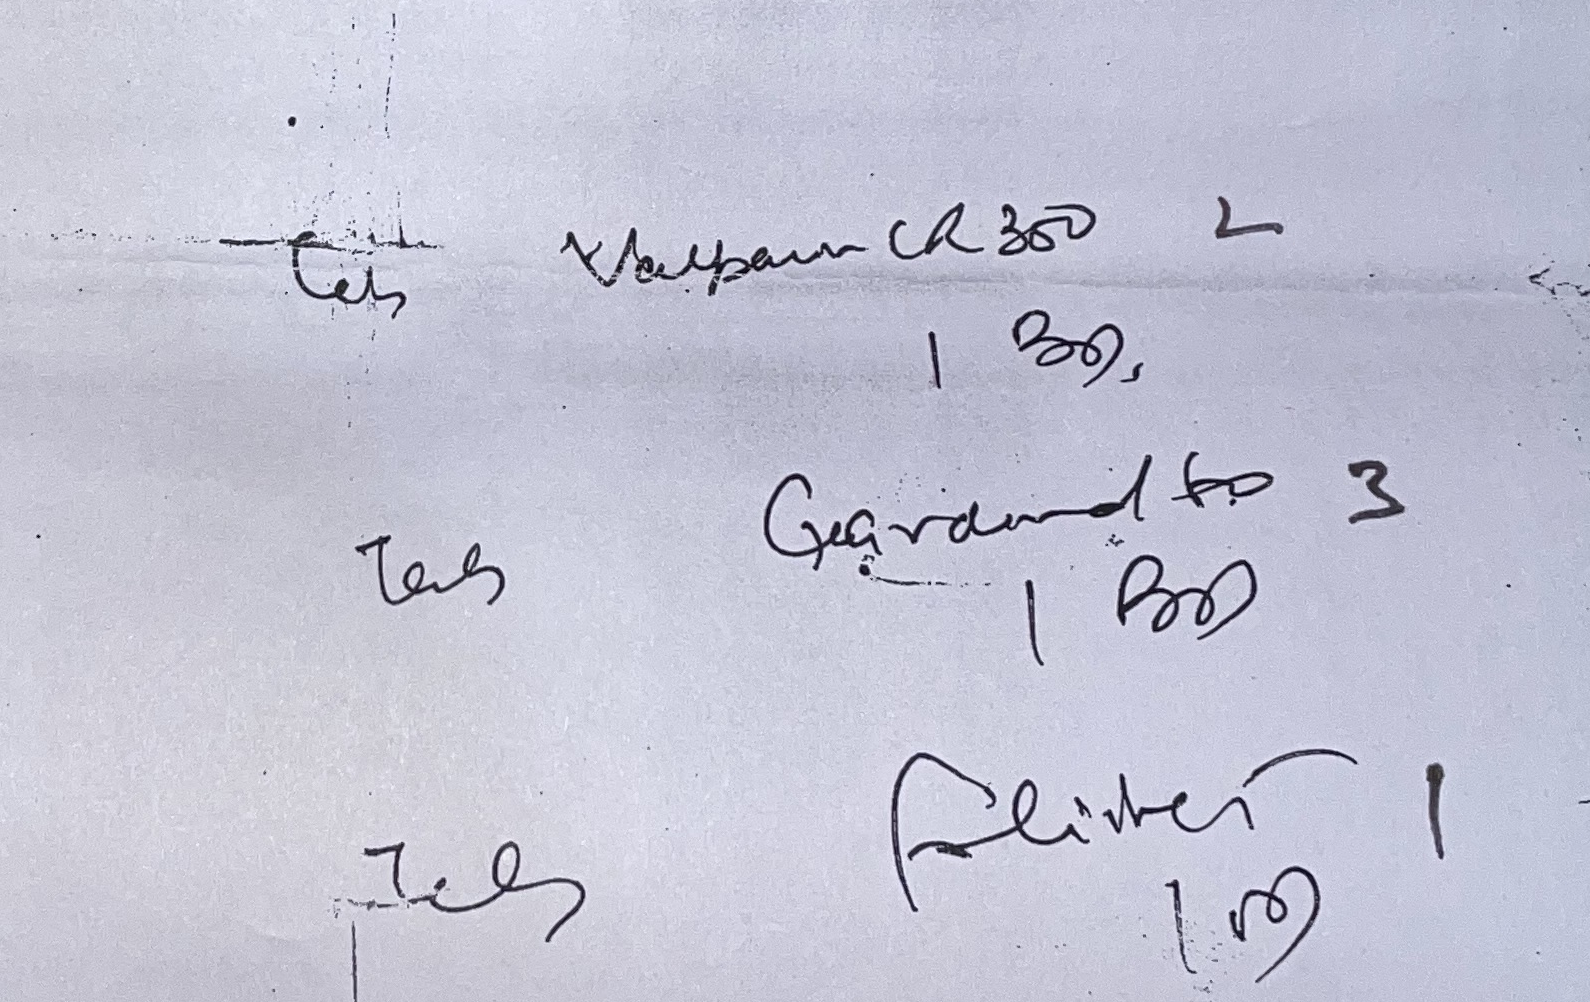 Tab Valparin CR 300 2
1 BD
Tab Gardenal 60 3
1 BD
Tab 1
1 BD